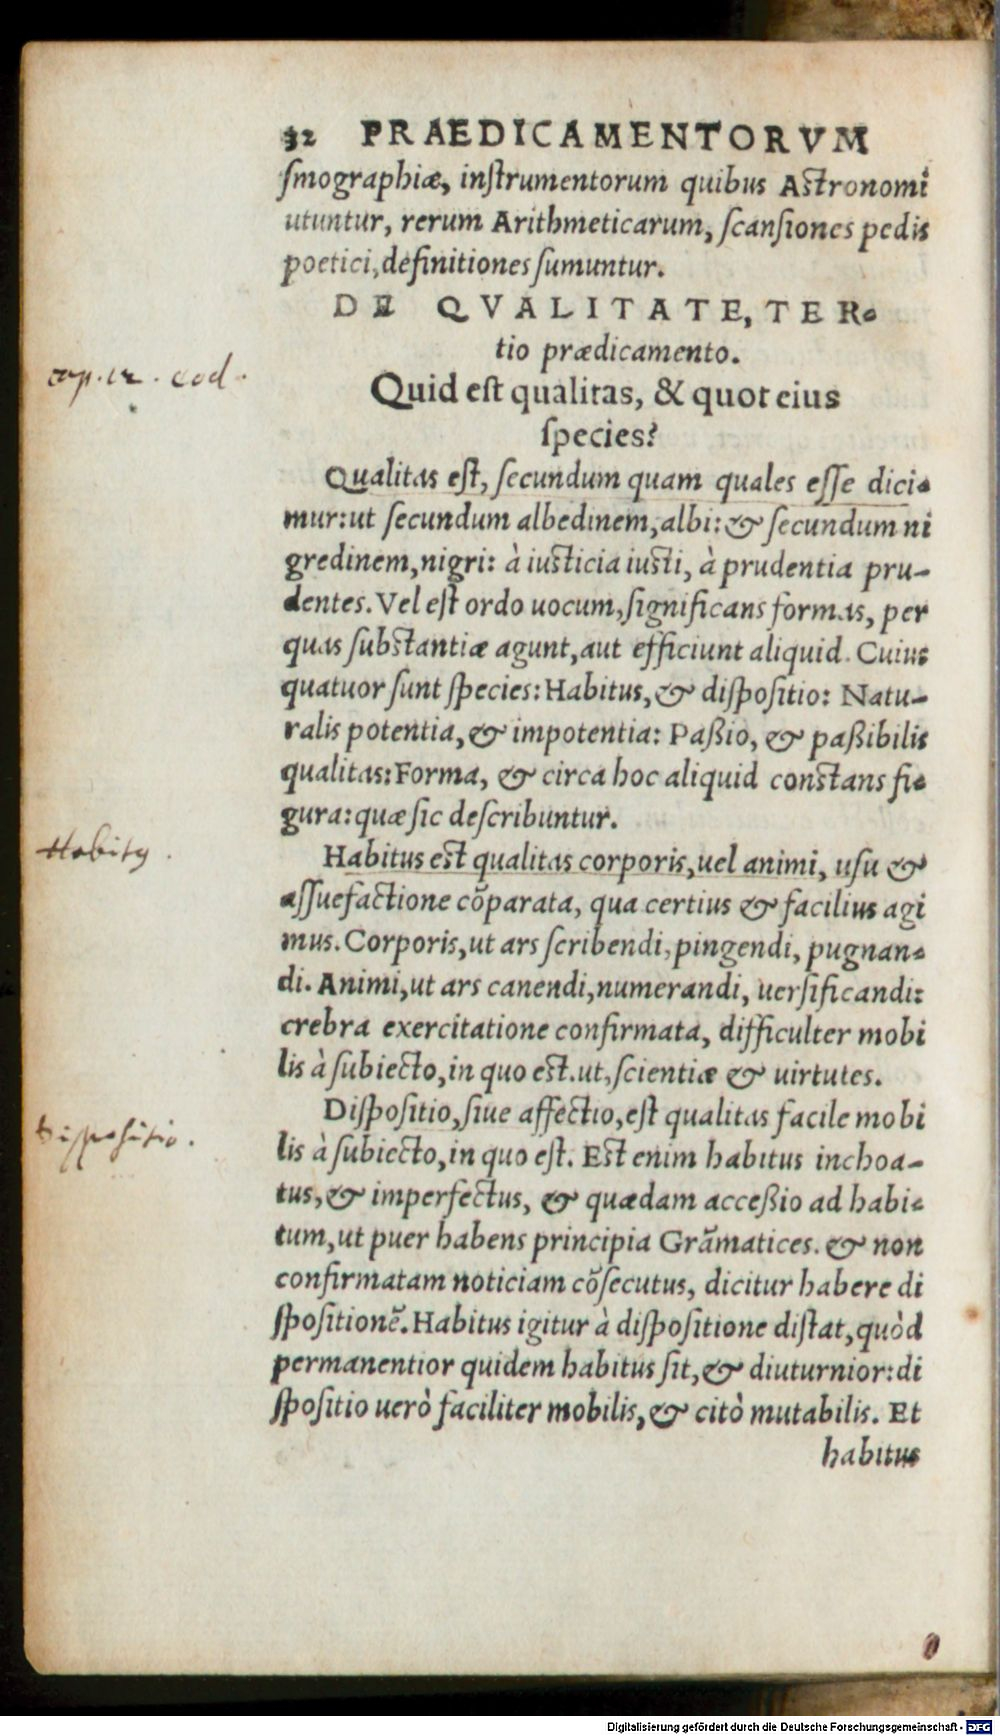 32 PRAEDICAMENTORVM
ſmographiæ, inſtrumentorum quibus Aſtronomi
utuntur, rerum Arithmeticarum, ſcanſiones pedis
poetici, definitiones ſumuntur.
DE QVALITATE, TER-
tio prædicamento.
Quid eſt qualitas, & quot eius
ſpecies?
Qualitas eſt, ſecundum quam quales eſſe dici-
mur: ut ſecundum albedinem, albi: & ſecundum ni
gredinem, nigri: à iuſticia iuſti, à prudentia pru-
dentes. Vel eſt ordo uocum, ſignificans formas, per
quas ſubſtantiæ agunt, aut efficiunt aliquid. Cuius
quatuor ſunt ſpecies: Habitus, & diſpoſitio: Natu-
ralis potentia, & impotentia: Paßio, & paßibilis
qualitas: Forma, & circa hoc aliquid conſtans fi-
gura: quæ ſic deſcribuntur.
Habitus
Habitus eſt qualitas corporis, uel animi, uſu &
aſſuefactione cõparata, qua certius & facilius agi
mus. Corporis, ut ars ſcribendi, pingendi, pugnan-
di. Animi, ut ars canendi, numerandi, uerſificandi:
crebra exercitatione confirmata, difficulter mobi
lis à ſubiecto, in quo eſt. ut, ſcientiæ & uirtutes.
Diſpoſitio.
Diſpoſitio, ſiue affectio, eſt qualitas facile mobi
lis à ſubiecto, in quo eſt. Eſt enim habitus inchoa-
tus, & imperfectus, & quædam acceßio ad habi-
tum, ut puer habens principia Grãmatices. & non
confirmatam noticiam cõſecutus, dicitur habere di
ſpoſitionẽ. Habitus igitur à diſpoſitione diſtat, quòd
permanentior quidem habitus ſit, & diuturnior: di
ſpoſitio uerò faciliter mobilis, & citò mutabilis. Et
habitus
Digitalisierung gefördert durch die Deutsche Forschungsgemeinschaft - DFG